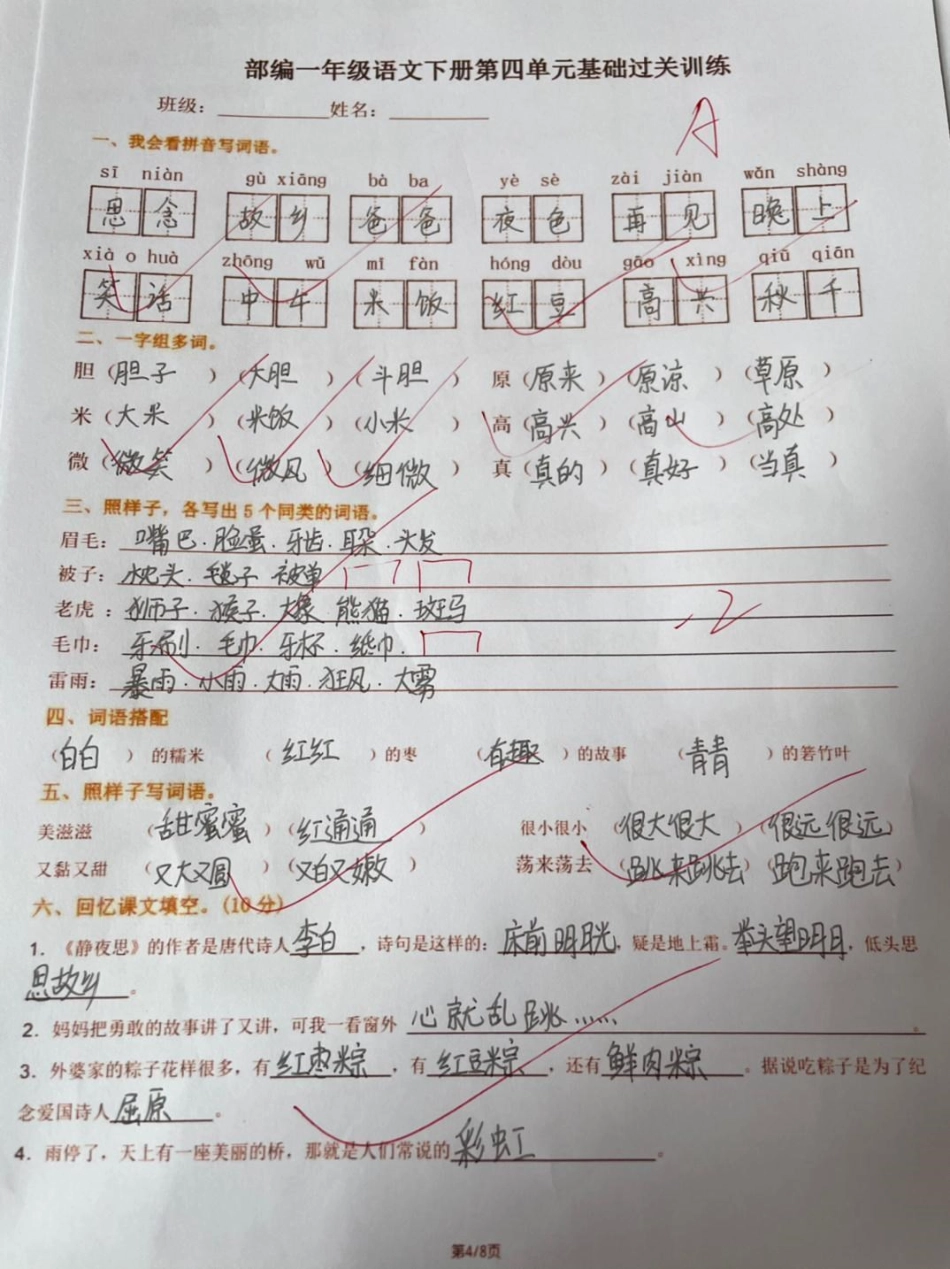 部编一年级语文下册第四单元基础过关训练
班级：__________姓名：__________
A
一、我会看拼音写词语。
sī niàn gù xiāng bà ba yè sè zài jiàn wǎn shàng
思念 故乡 爸爸 夜色 再见 晚上
xià o huà zhōng wǔ mǐ fàn hóng dòu gāo xìng qiū qiān
笑话 中午 米饭 红豆 高兴 秋千
二、一字组多词。
胆（胆子）（大胆）（斗胆） 原（原来）（原谅）（草原）
米（大米）（米饭）（小米） 高（高兴）（高山）（高处）
微（微笑）（微风）（细微） 真（真的）（真好）（当真）
三、照样子，各写出5个同类的词语。
眉毛：嘴巴.脸蛋.牙齿.耳朵.头发
被子：枕头.毯子 被单
老虎：狮子.猴子.大象 熊猫.斑马
-2
毛巾：牙刷.毛巾.牙杯.纸巾.
雷雨：暴雨.小雨.大雨.狂风.大雾
四、词语搭配
（白白）的糯米 （红红）的枣 （有趣）的故事 （青青）的箬竹叶
五、照样子写词语。
美滋滋 （甜蜜蜜）（红通通） 很小很小（很大很大）（很远很远）
又黏又甜 （又大又圆）（又白又嫩） 荡来荡去（跳来跳去）（跑来跑去）
六、回忆课文填空。(10分)
1. 《静夜思》的作者是唐代诗人李白，诗句是这样的：床前明月光，疑是地上霜。举头望明月，低头思
思故乡。
2. 妈妈把勇敢的故事讲了又讲，可我一看窗外 心就乱跳……。
3. 外婆家的粽子花样很多，有红枣粽，有红豆粽，还有鲜肉粽。据说吃粽子是为了纪
念爱国诗人屈原。
4. 雨停了，天上有一座美丽的桥，那就是人们常说的彩虹。
第4/8页